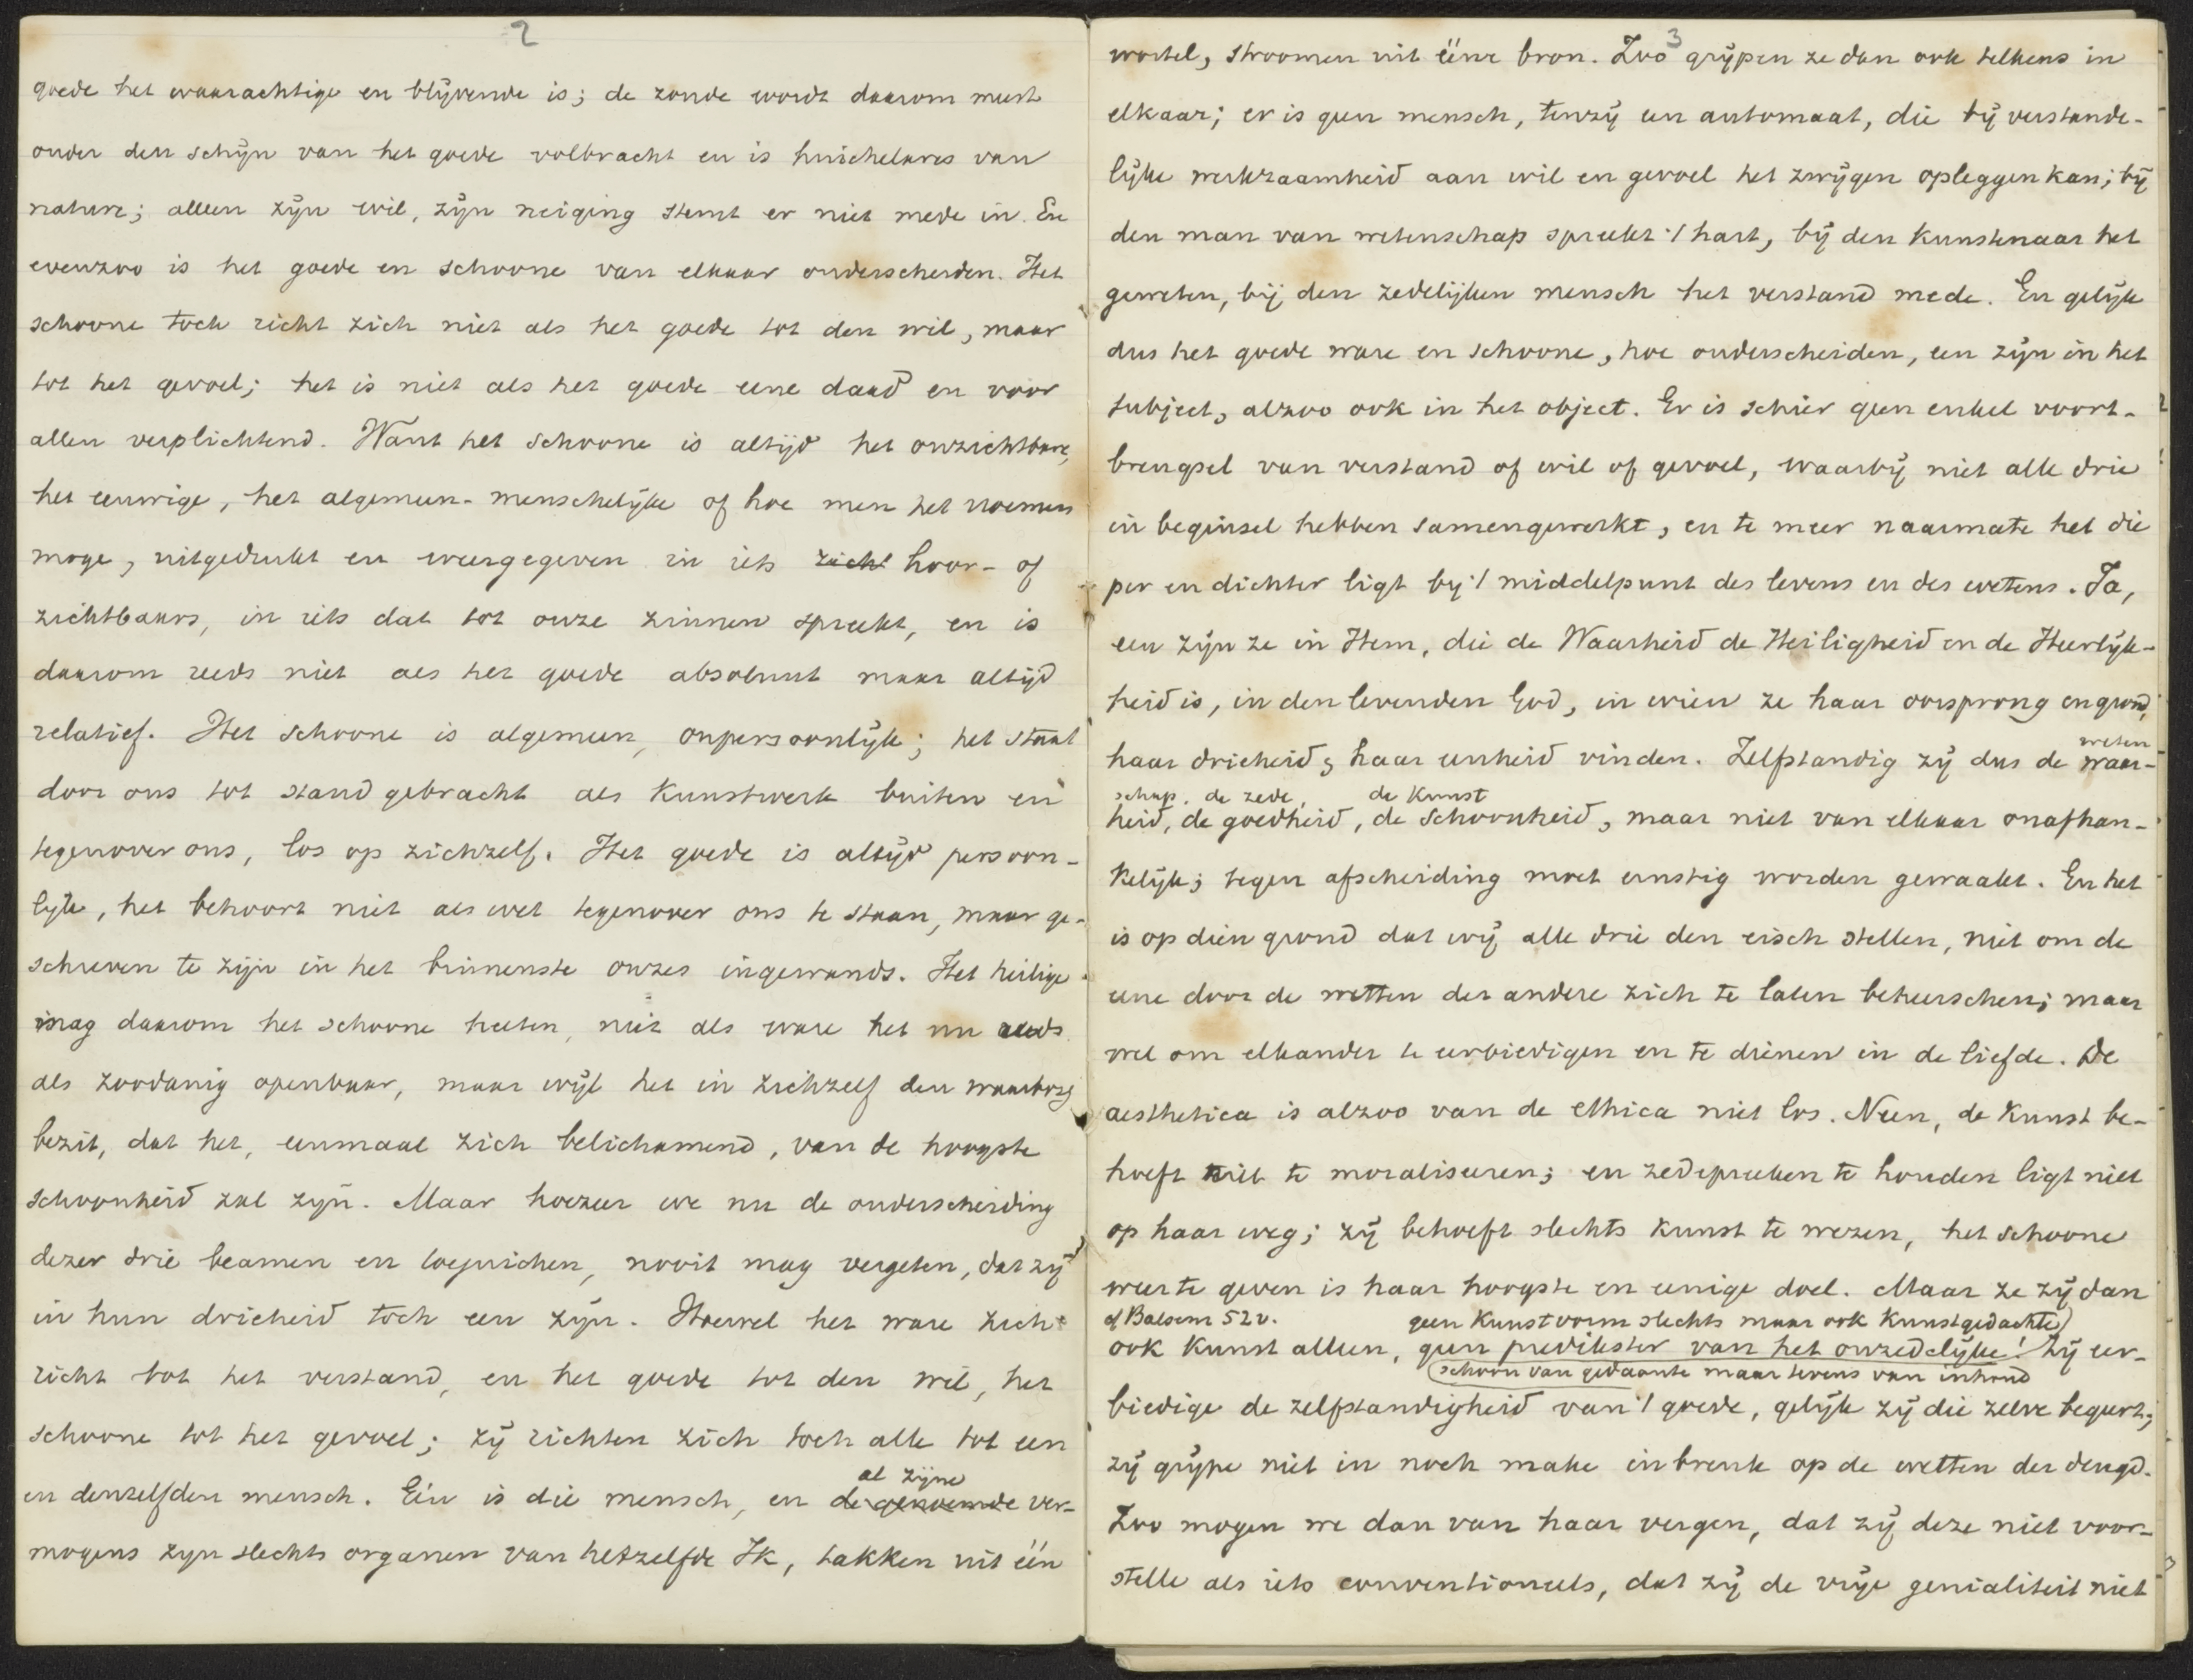 2
goede het waarachtige en blijvende is; de zonde wordt daarom meest
onder den schijn van het goede volbracht en is huichelares van
nature; alleen zijn wil, zijn neiging stemt er niet mede in. En
evenzoo is het goede en schoone van elkaar onderscheiden. Het
schoone toch richt zich niet als het goede tot den wil, maar
tot het gevoel; het is niet als het goede eene daad en voor
allen verplichtend. Want het schoone is altijd het onzichtbare,
het eeuwige, het algemeen-menschelijke of hoe men het noemen
moge, uitgedrukt en weergegeven in iets zicht hoor- of
zichtbaars, in iets dat tot onze zinnen spreekt, en is
daarom reeds niet als het goede absoluut maar altijd
relatief. Het schoone is algemeen, onpersoonlijk; het staat
door ons tot stand gebracht als kunstwerk buiten en
tegenover ons, los op zichzelf. Het goede is altijd persoon-
lijk, het behoort niet als wet tegenover ons te staan, maar ge-
schreven te zijn in het binnenste onzes ingewands. Het heilige
mag daarom het schoone heeten, niet als ware het nu reeds
als zoodanig openbaar, maar wijl het in zichzelf den waarborg
bezit, dat het, eenmaal zich belichamend, van de hoogste
schoonheid zal zijn. Maar hoezeer we nu de onderscheiding
dezer drie beamen en toejuichen, nooit mag vergeten, dat zij
in hun drieheid toch een zijn. Hoewel het ware zich
richt tot het verstand, en het goede tot den wil, het
schoone tot het gevoel; zij richten zich toch alle tot een
al zijne
en denzelfden mensch. Eén is die mensch, en de genoemde ver-
mogens zijn slechts organen van hetzelfde Ik, takken uit één
3
wortel, stroomen uit ééne bron. Zoo grijpen ze dan ook telkens in
elkaar; er is geen mensch, tenzij een automaat, die bij verstande-
lijke werkzaamheid aan wil en gevoel het zwijgen opleggen kan; bij
den man van wetenschap spreekt 't hart, bij den kunstenaar het
geweten, bij den zedelijken mensch het verstand mede. En gelijk
dus het goede ware en schoone, hoe onderscheiden, een zijn in het
subject, alzoo ook in het object. Er is schier geen enkel voort-
brengsel van verstand of wil of gevoel, waarbij niet alle drie
in beginsel hebben samengewerkt, en te meer naarmate het die
per en dichter ligt bij 't middelpunt des levens en des wetens. Ja,
een zijn ze in Hem, die de Waarheid de Heiligheid en de Heerlijk-
heid is, in den levenden God, in wien ze haar oorsprong en grond,
haar drieheid, haar eenheid vinden. Zelfstandig zij dus de waar-
weten
schap, de zede, de kunst
heid, de goedheid, de schoonheid, maar niet van elkaar onafhan-
kelijk; tegen afscheiding moet ernstig worden gewaakt. En het
is op dien grond dat wij alle drie den eisch stellen, niet om de
eene door de wetten der andere zich te laten beheerschen; maar
wel om elkander te eerbiedigen en te dienen in de liefde. De
aesthetica is alzoo van de ethica niet los. Neen, de kunst be-
hoeft niet te moraliseeren; en zedepreeken te houden ligt niet
op haar weg; zij behoeft slechts kunst te wezen, het schoone
weer te geven is haar hoogste en eenige doel. Maar ze zij dan
cf Balsem 52v. geen kunstvorm slechts maar ook kunstgedachte
ook kunst alleen, geen predikster van het onzedelijke! Zij eer-
schoon van gedaante maar tevens van inhoud
biedige de zelfstandigheid van 't goede, gelijk zij die zelve begeert;
zij grijpe niet in noch make inbreuk op de wetten der deugd.
Zoo mogen we dan van haar vergen, dat zij deze niet voor-
stelle als iets conventioneels, dat zij de vrije genialiteit niet